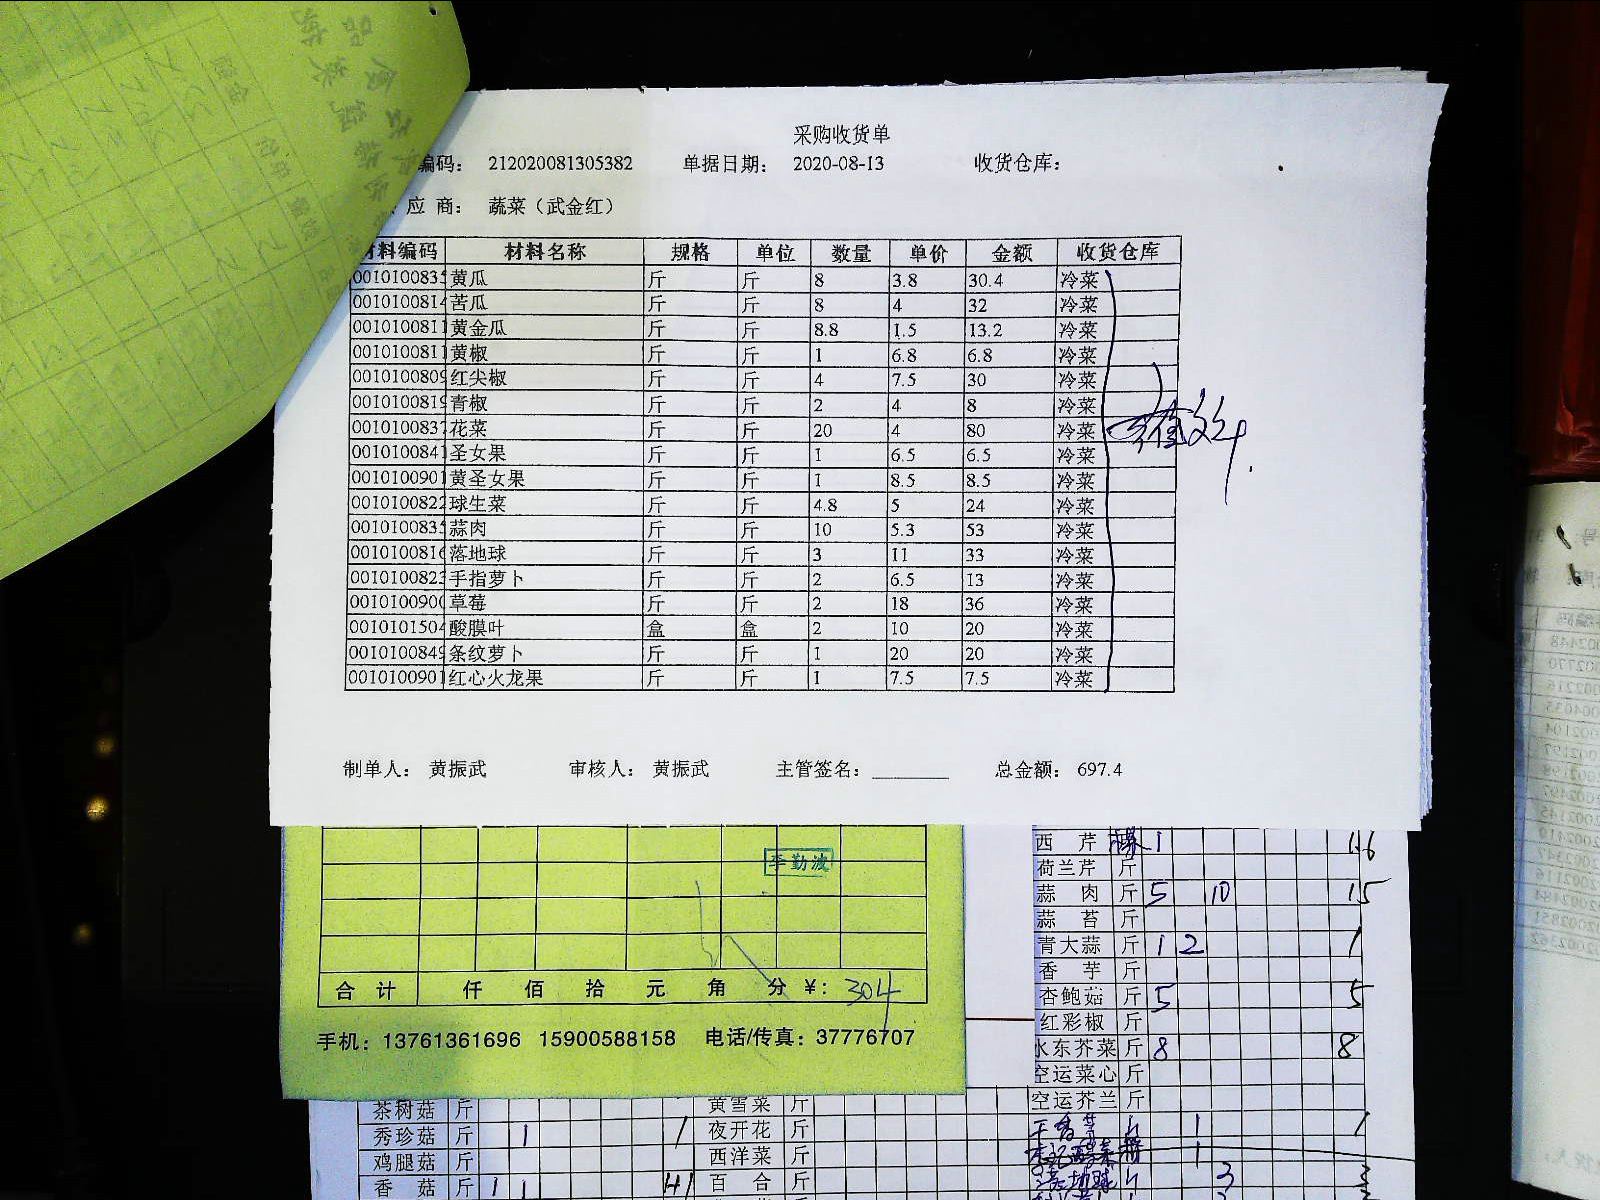 采购收货单
编码： 212020081305382 单据日期： 2020-08-13 收货仓库：
应 商： 蔬菜（武金红）
材料编码 材料名称 规格 单位 数量 单价 金额 收货仓库
001010083 黄瓜 斤 斤 8 3.8 30.4 冷菜
001010081 苦瓜 斤 斤 8 4 32 冷菜
001010081 黄金瓜 斤 斤 8.8 1.5 13.2 冷菜
001010081 黄椒 斤 斤 1 6.8 6.8 冷菜
001010080 红尖椒 斤 斤 4 7.5 30 冷菜
001010081 青椒 斤 斤 2 4 8 冷菜
001010083 花菜 斤 斤 20 4 80 冷菜
001010084 圣女果 斤 斤 1 6.5 6.5 冷菜
001010090 黄圣女果 斤 斤 1 8.5 8.5 冷菜
001010082 球生菜 斤 斤 4.8 5 24 冷菜
001010083 蒜肉 斤 斤 10 5.3 53 冷菜
001010081 落地球 斤 斤 3 11 33 冷菜
001010082 手指萝卜 斤 斤 2 6.5 13 冷菜
001010090 草莓 斤 斤 2 18 36 冷菜
001010150 酸膜叶 盒 盒 2 10 20 冷菜
001010084 条纹萝卜 斤 斤 1 20 20 冷菜
001010090 红心火龙果 斤 斤 1 7.5 7.5 冷菜
制单人： 黄振武 审核人： 黄振武 主管签名： 总金额： 697.4
李勤波
合计 仟 佰 拾 元 角 分 ¥: 304
手机：13761361696 15900588158 电话/传真：37776707
西 芹 1 16
荷兰芹 斤
蒜 肉 斤 5 10 15
蒜 苔 斤
青大蒜 斤 1 2 1
香 芋 斤
杏鲍菇 斤 5 5
红彩椒 斤
水东芥菜 斤 8 8
空运菜心 斤
空运芥兰 斤
茶树菇 斤 黄雪菜 斤
秀珍菇 斤 1 1 夜开花 斤
鸡腿菇 斤 西洋菜 斤
香 菇 斤 1 1 百 合 斤